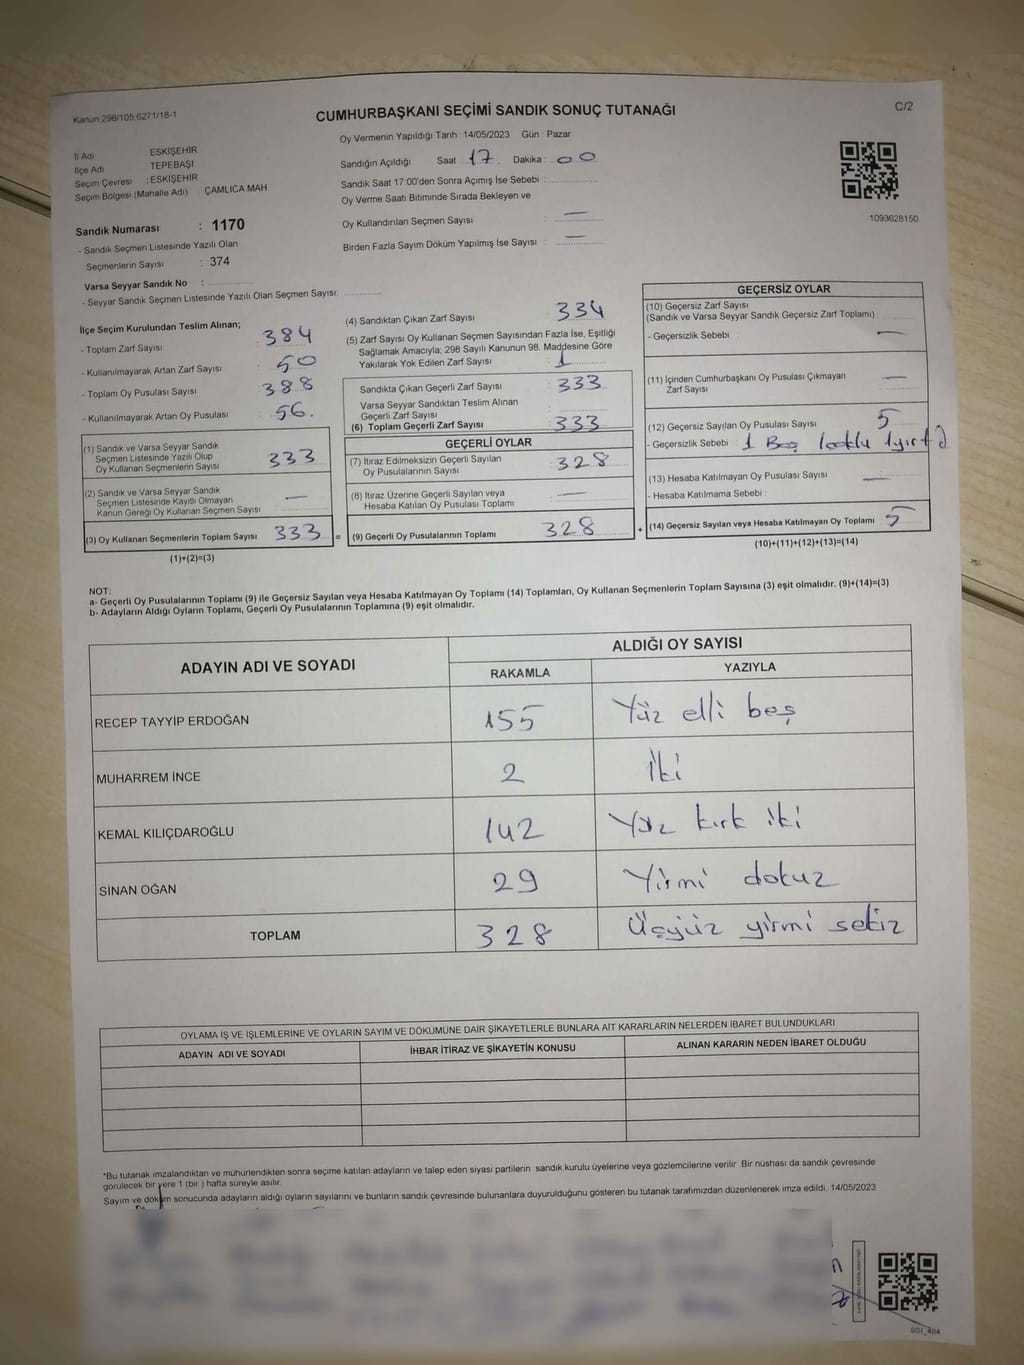 Kanun 298/105;6271/18-1
CUMHURBAŞKANI SEÇİMİ SANDIK SONUÇ TUTANAĞI
C/2
Oy Vermenin Yapıldığı Tarih : 14/05/2023 Gün : Pazar
İl Adı ESKİŞEHİR
İlçe Adı TEPEBAŞI
Seçim Çevresi : ESKİŞEHİR
Seçim Bölgesi (Mahalle Adı) ÇAMLICA MAH
Sandığın Açıldığı Saat 17 Dakika : 00
Sandık Saat 17:00'den Sonra Açımış İse Sebebi :
Oy Verme Saati Bitiminde Sırada Bekleyen ve
Oy Kullandırılan Seçmen Sayısı : —
Birden Fazla Sayım Döküm Yapılmış İse Sayısı : —
1093628150
Sandık Numarası : 1170
- Sandık Seçmen Listesinde Yazılı Olan
Seçmenlerin Sayısı : 374
Varsa Seyyar Sandık No :
- Seyyar Sandık Seçmen Listesinde Yazılı Olan Seçmen Sayısı:
İlçe Seçim Kurulundan Teslim Alınan;
- Toplam Zarf Sayısı : 384
- Kullanılmayarak Artan Zarf Sayısı : 50
- Toplam Oy Pusulası Sayısı : 388
- Kullanılmayarak Artan Oy Pusulası : 56.
(1) Sandık ve Varsa Seyyar Sandık
Seçmen Listesinde Yazılı Olup
Oy Kullanan Seçmenlerin Sayısı : 333
(2) Sandık ve Varsa Seyyar Sandık
Seçmen Listesinde Kayıtlı Olmayan
Kanun Gereği Oy Kullanan Seçmen Sayısı : —
(3) Oy Kullanan Seçmenlerin Toplam Sayısı : 333 =
(1)+(2)=(3)
(4) Sandıktan Çıkan Zarf Sayısı : 334
(5) Zarf Sayısı Oy Kullanan Seçmen Sayısından Fazla İse, Eşitliği
Sağlamak Amacıyla; 298 Sayılı Kanunun 98. Maddesine Göre
Yakılarak Yok Edilen Zarf Sayısı : 1
Sandıkta Çıkan Geçerli Zarf Sayısı : 333
Varsa Seyyar Sandıktan Teslim Alınan
Geçerli Zarf Sayısı :
(6) Toplam Geçerli Zarf Sayısı : 333
GEÇERLİ OYLAR
(7) İtiraz Edilmeksizin Geçerli Sayılan
Oy Pusulalarının Sayısı : 328
(8) İtiraz Üzerine Geçerli Sayılan veya
Hesaba Katılan Oy Pusulası Toplamı : —
(9) Geçerli Oy Pusulalarının Toplamı 328 +
GEÇERSİZ OYLAR
(10) Geçersiz Zarf Sayısı
(Sandık ve Varsa Seyyar Sandık Geçersiz Zarf Toplamı)
- Geçersizlik Sebebi : —
(11) İçinden Cumhurbaşkanı Oy Pusulası Çıkmayan
Zarf Sayısı : —
(12) Geçersiz Sayılan Oy Pusulası Sayısı : 5
- Geçersizlik Sebebi : 1 Boş
(13) Hesaba Katılmayan Oy Pusulası Sayısı : —
- Hesaba Katılmama Sebebi :
(14) Geçersiz Sayılan veya Hesaba Katılmayan Oy Toplamı : 5
(10)+(11)+(12)+(13)=(14)
NOT:
a- Geçerli Oy Pusulalarının Toplamı (9) ile Geçersiz Sayılan veya Hesaba Katılmayan Oy Toplamı (14) Toplamları, Oy Kullanan Seçmenlerin Toplam Sayısına (3) eşit olmalıdır. (9)+(14)=(3)
b- Adayların Aldığı Oyların Toplamı, Geçerli Oy Pusulalarının Toplamına (9) eşit olmalıdır.
ADAYIN ADI VE SOYADI
ALDIĞI OY SAYISI
RAKAMLA YAZIYLA
RECEP TAYYİP ERDOĞAN 155 Yüz elli beş
MUHARREM İNCE 2 İki
KEMAL KILIÇDAROĞLU 142 Yüz kırk iki
SİNAN OĞAN 29 Yirmi dokuz
TOPLAM 328 Üçyüz yirmi sekiz
OYLAMA İŞ VE İŞLEMLERİNE VE OYLARIN SAYIM VE DÖKÜMÜNE DAİR ŞİKAYETLERLE BUNLARA AİT KARARLARIN NELERDEN İBARET BULUNDUKLARI
ADAYIN ADI VE SOYADI İHBAR İTİRAZ VE ŞİKAYETİN KONUSU ALINAN KARARIN NEDEN İBARET OLDUĞU
*Bu tutanak imzalandıktan ve mühürlendikten sonra seçime katılan adayların ve talep eden siyasi partilerin sandık kurulu üyelerine veya gözlemcilerine verilir. Bir nüshası da sandık çevresinde
görülecek bir yere 1 (bir ) hafta süreyle asılır.
Sayım ve döküm sonucunda adayların aldığı oyların sayılarını ve bunların sandık çevresinde bulunanlara duyurulduğunu gösteren bu tutanak tarafımızdan düzenlenerek imza edildi. 14/05/2023
SSI_404